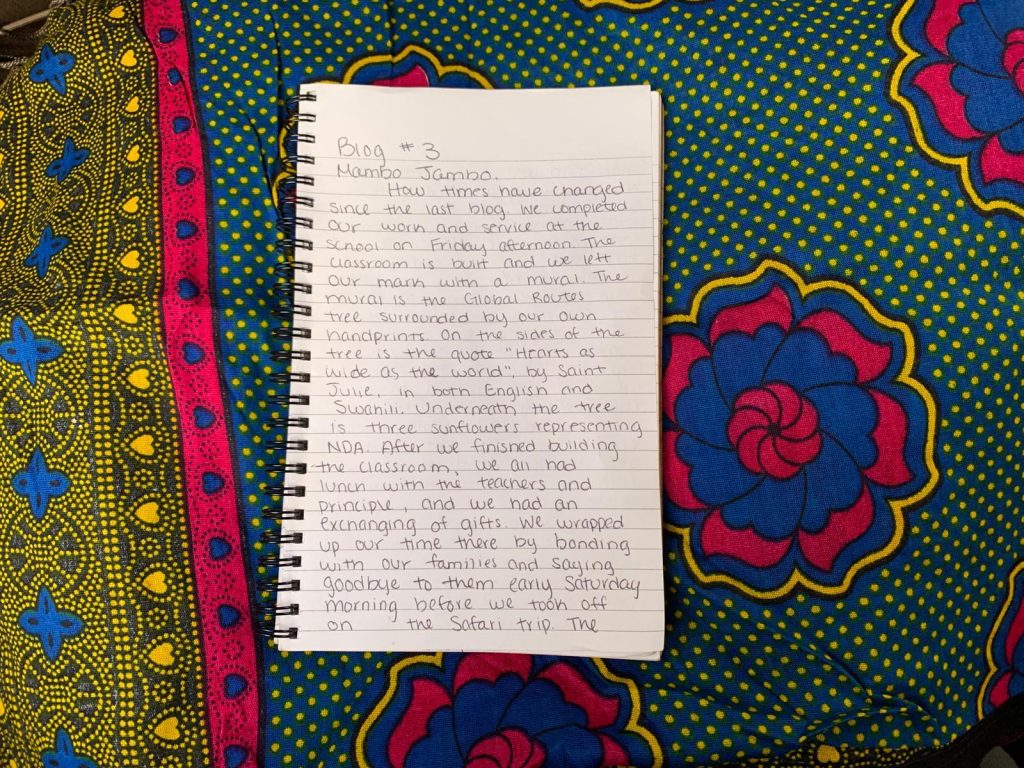 Blog # 3
Mambo Jambo.
How times have changed
since the last blog. We completed
our work and service at the
school on Friday afternoon. The
classroom is built and we left
our mark with a mural. The
mural is the Global Routes
tree surrounded by our own
handprints. On the sides of the
tree is the quote "Hearts as
wide as the world", by Saint
Julie, in both English and
Swahili. Underneath the tree
is three sunflowers representing
NDA. After we finished building
the classroom, we all had
lunch with the teachers and
principle, and we had an
exchanging of gifts. We wrapped
up our time there by bonding
with our families and saying
goodbye to them early Saturday
morning before we took off
on the Safari trip. The